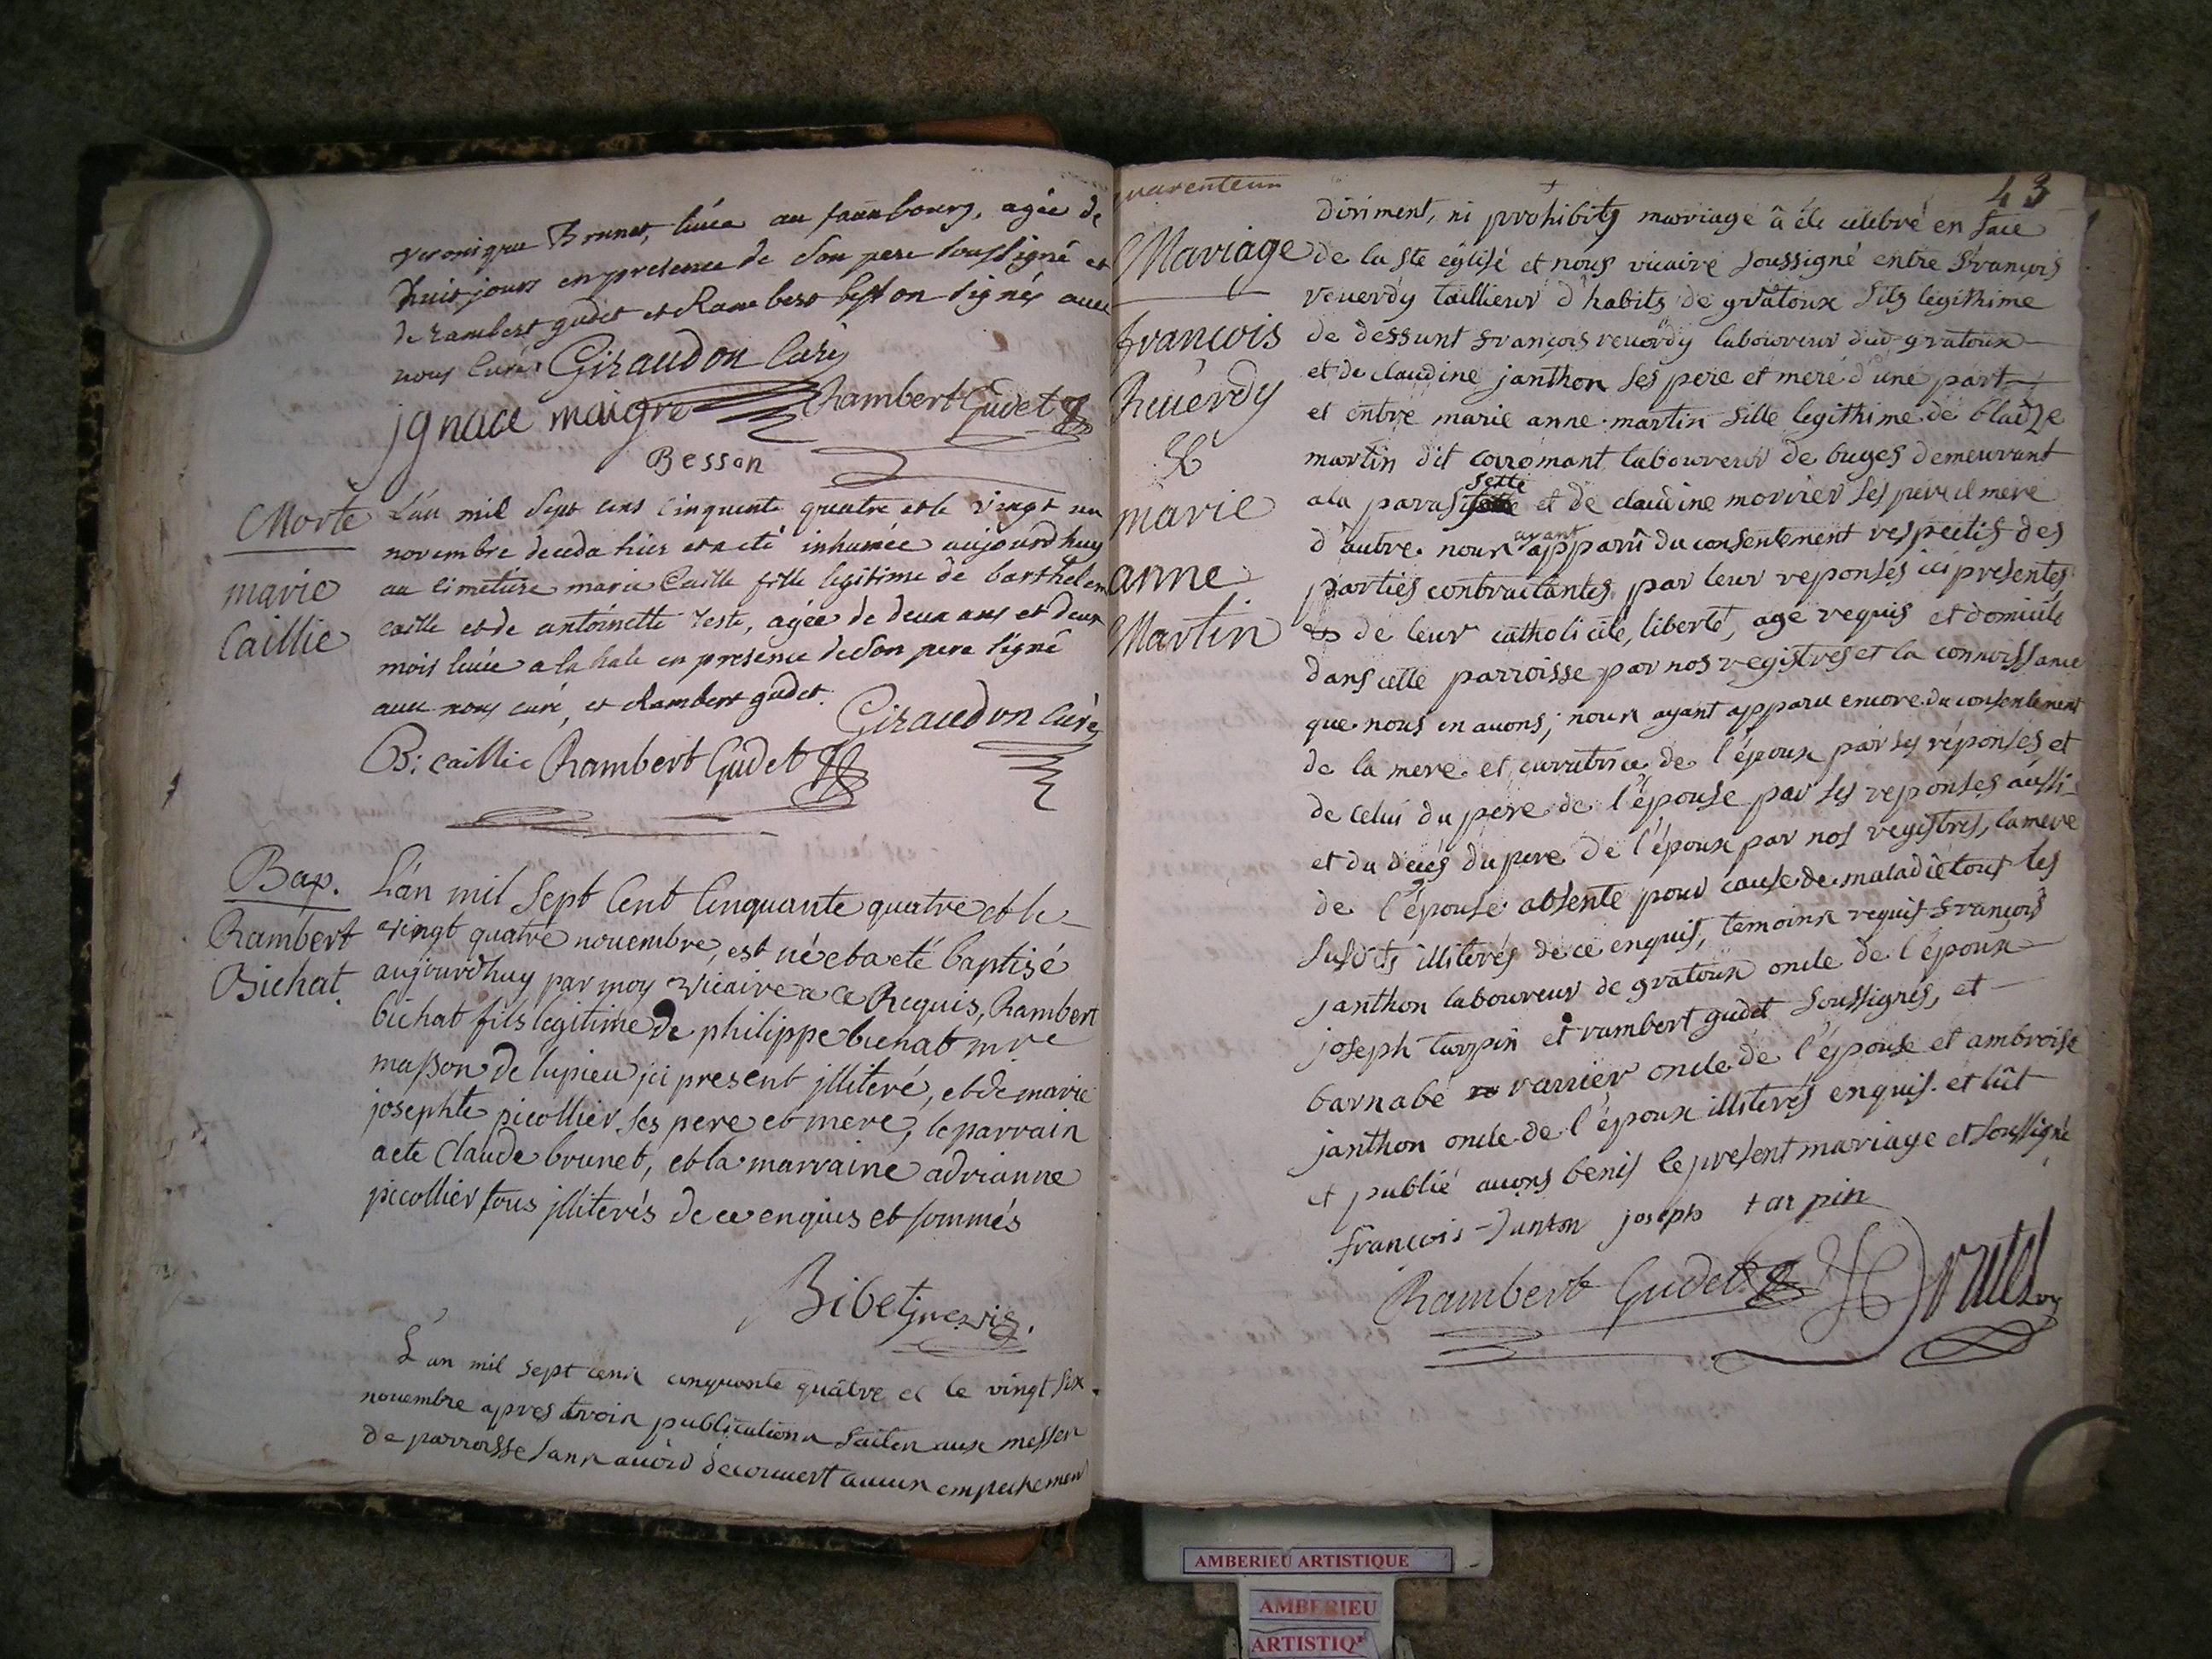 veronique Brunet, livée au fauxbourg, agée de
huit jours en presence de son pere soussigné et
de rambert gudet et Rambert besson signés avec
nous curé. Giraudon Curé
jgnace maigre Rambert Gudet
Besson
Morte
marie
Caillie
L'an mil sept cens cinquente quatre et le vingt un
novembre deceda hier et a eté inhumée aujourdhuy
au cimetiere marie Caille fille legitime de barthelem
caille et de antoinette Teste, agée de deux ans et deux
mois livée a la hale en presence de son pere signé
avec nous curé, et Rambert gudet.
Giraudon Curé
B: caillie Rambert Gudet
Bap.
Rambert
Bichat
L'an mil sept Cent Cinquante quatre et le
vingt quatre novembre, est né et a eté baptisé
aujourdhuy par moy vicaire a ce Requis, Rambert
bichat fils legitime de philippe bichat mre
masson de lupieu ici present jlliteré, et de marie
josephte picollier ses pere et mere, le parrain
a ete Claude brunet, et la marraine adrianne
picollier tous jlliterés de ce enquis et sommés
L'an mil sept cens cinquante quâtre et le vingt six
novembre apres trois publications faites aux messes
de parroisse sans avoir découvert aucun empechemen
43
Mariage
françois
Reverdy
&
marie
anne
Martin
diriment, ni prohibitif mariage â éte celebré en face
de la ste église et nous vicaire soussigné entre françois
reverdy taillieur d'habits de grâtoux fils legithime
de deffunt françois reverdy laboureur dud gratoux
et de claudine janthon ses pere et mere d'une part
et entre marie anne martin fille legithime de blaize
martin dit corromant laboureur de buges demeurant
a la parusselle et de claudine morrier ses pere et mere
d'autre. nous ayant apparû du consentement respectif des
parties contractantes par leur reponses ici presentes
de leur catholicité, liberté, age requis et domicile
dans cette parroisse par nos registres et la connoissance
que nous en avons; nous ayant apparu encore du consentement
de la mere et curratrice de l'époux par ses réponses et
de celui du pere de l'épouse par ses reponses aussi
et du deces du pere de l'époux par nos registres, la mere
de l'épouse absente pour cause de maladie tous les
susdits illiterés de ce enquis, temoins requis françois
janthon laboureur de gratoux oncle de l'époux
joseph tarpin et rambert gudet soussignés, et
barnabé varrier oncle de l'épouse et ambroise
janthon oncle de l'époux illiterés enquis. et lût
et publié avons benis le present mariage et soussigné
françois Janton joseph tarpin
Rambert Gudet
AMBERIEU ARTISTIQUE
AMBERIEU
ARTISTIQ